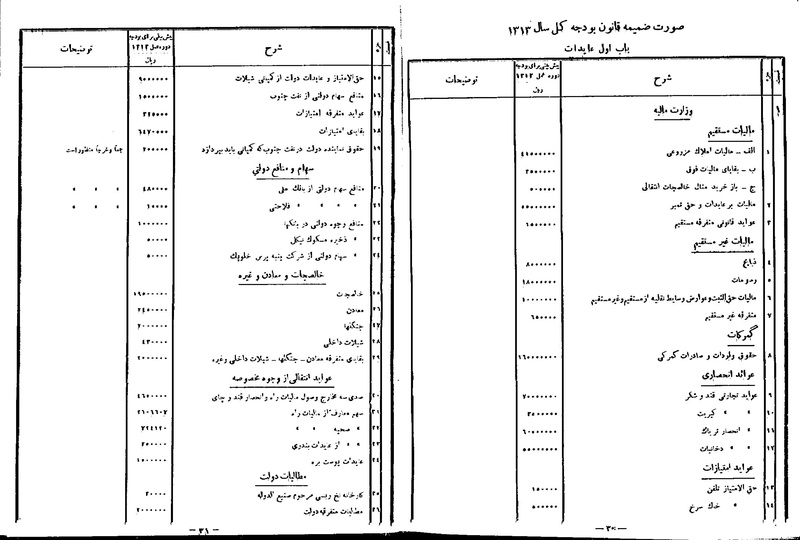 صورت ضمیمه قانون بودجه کل سال ۱۳۱۳
باب اول عایدات
شرح
پیش بینی برای بودجه دوره عمل ۱۳۱۳
ریال
توضیحات
وزارت مالیه
مالیات مستقیم
۱ الف – مالیات املاک مزروعی
ب – بقایای مالیات فوق ۲۰۰۰۰۰۰
ج – باز خرید منال خالصجات انتقالی ۵۰۰۰۰۰
۲ مالیات بر عایدات و حق تمبر
۳ عواید قانونی متفرقه مستقیم ۱۵۰۰۰۰۰
مالیات غیر مستقیم
۴ ذبایح ۸۰۰۰۰۰۰
۵ رسومات ۱۸۰۰۰۰۰۰
۶ مالیات حق الثبت و عوارض وسایط نقلیه از مستقیم و غیر مستقیم ۱۰۰۰۰۰۰۰
۷ متفرقه غیر مستقیم ۶۵۰۰۰۰
گمرکات
۸ حقوق واردات و صادرات گمرکی
عوائد انحصاری
۹ عواید تجارتی قند و شکر
۱۰ » » کبریت
۱۱ » انحصار تریاک
۱۲ » » دخانیات
عواید امتیازات
۱۳ حق الامتیاز تلفن ۱۵۰۰۰۰
۱۴ » خاک سرخ ۵۰۰۰۰۰
– ۳۰ –
شرح
پیش بینی برای بودجه دوره عمل ۱۳۱۳
ریال
توضیحات
۱۵ حق الامتیاز و عایدات دولت از کمپانی شیلات ۹۰۰۰۰۰۰
۱۶ منافع سهام دولتی از نفت جنوب ۱۵۰۰۰۰۰
۱۷ عواید متفرقه امتیازات
۱۸ بقایای امتیازات ۶۴۷۰۰۰۰
۱۹ حقوق نماینده دولت در نفت جنوب که کمپانی باید بپردازد ۲۰۰۰۰۰ جمعاً و خرجاً منظور است
سهام و منافع دولتی
۲۰ منافع سهام دولتی از بانک ملی ۴۸۰۰۰۰ » » »
۲۱ » » » » فلاحتی ۱۰۰۰۰ » » »
۲۲ منافع وجوه دولتی در بانکها ۱۰۰۰۰۰۰
۲۳ » ذخیره مسکوک نیکل ۵۰۰۰۰
۲۴ » سهام دولتی از شرکت پنبه پرس خلوپک ۵۰۰۰۰
خالصجات و معادن و غیره
۲۵ خالصجات ۱۹۵۰۰۰۰۰
۲۶ معادن ۲۴۵۰۰۰۰
۲۷ جنگلها
۲۸ شیلات داخلی
۲۹ بقایای متفرقه معادن – جنگلها – شیلات داخلی وغیره
عواید انتقالی از وجوه مخصوصه
۳۰ صدی سه مخارج وصول مالیات راه و انحصار قند و چای ۴۶۰۰۰۰۰
۳۱ سهم معارف از مالیات راه ۲۱۰۱۶۰۷
۳۲ » صحیه » » ۷۲۴۱۲۰
۳۳ » » از عایدات بندری
۳۴ عایدات پوست بره
مطالبات دولت
۳۵ کارخانه نخ ریسی مرحوم صنیع الدوله ۲۰۰۰۰
۳۶ مطالبات متفرقه دولت ۲۰۰۰۰۰۰
– ۳۱ –